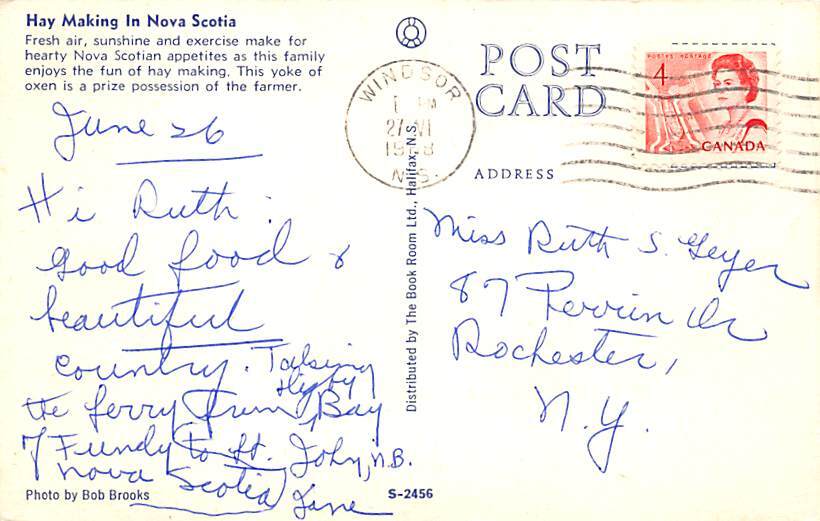 Hay Making In Nova Scotia
Fresh air, sunshine and exercise make for
hearty Nova Scotian appetites as this family
enjoys the fun of hay making. This yoke of
oxen is a prize possession of the farmer.
June 26
Hi Ruth:
Good food &
beautiful
country. Taking
the ferry from Digby, Bay
of Fundy to St. John, N.B.
Nova Scotia Jane
Photo by Bob Brooks
S-2456
Distributed by The Book Room Ltd., Halifax, N.S.
POST
CARD
ADDRESS
WINDSOR
PM
27 VI
N.S.
POSTES POSTAGE
4
CANADA
Miss Ruth S. Geyer
87 Perrin Dr
Rochester,
N.Y.